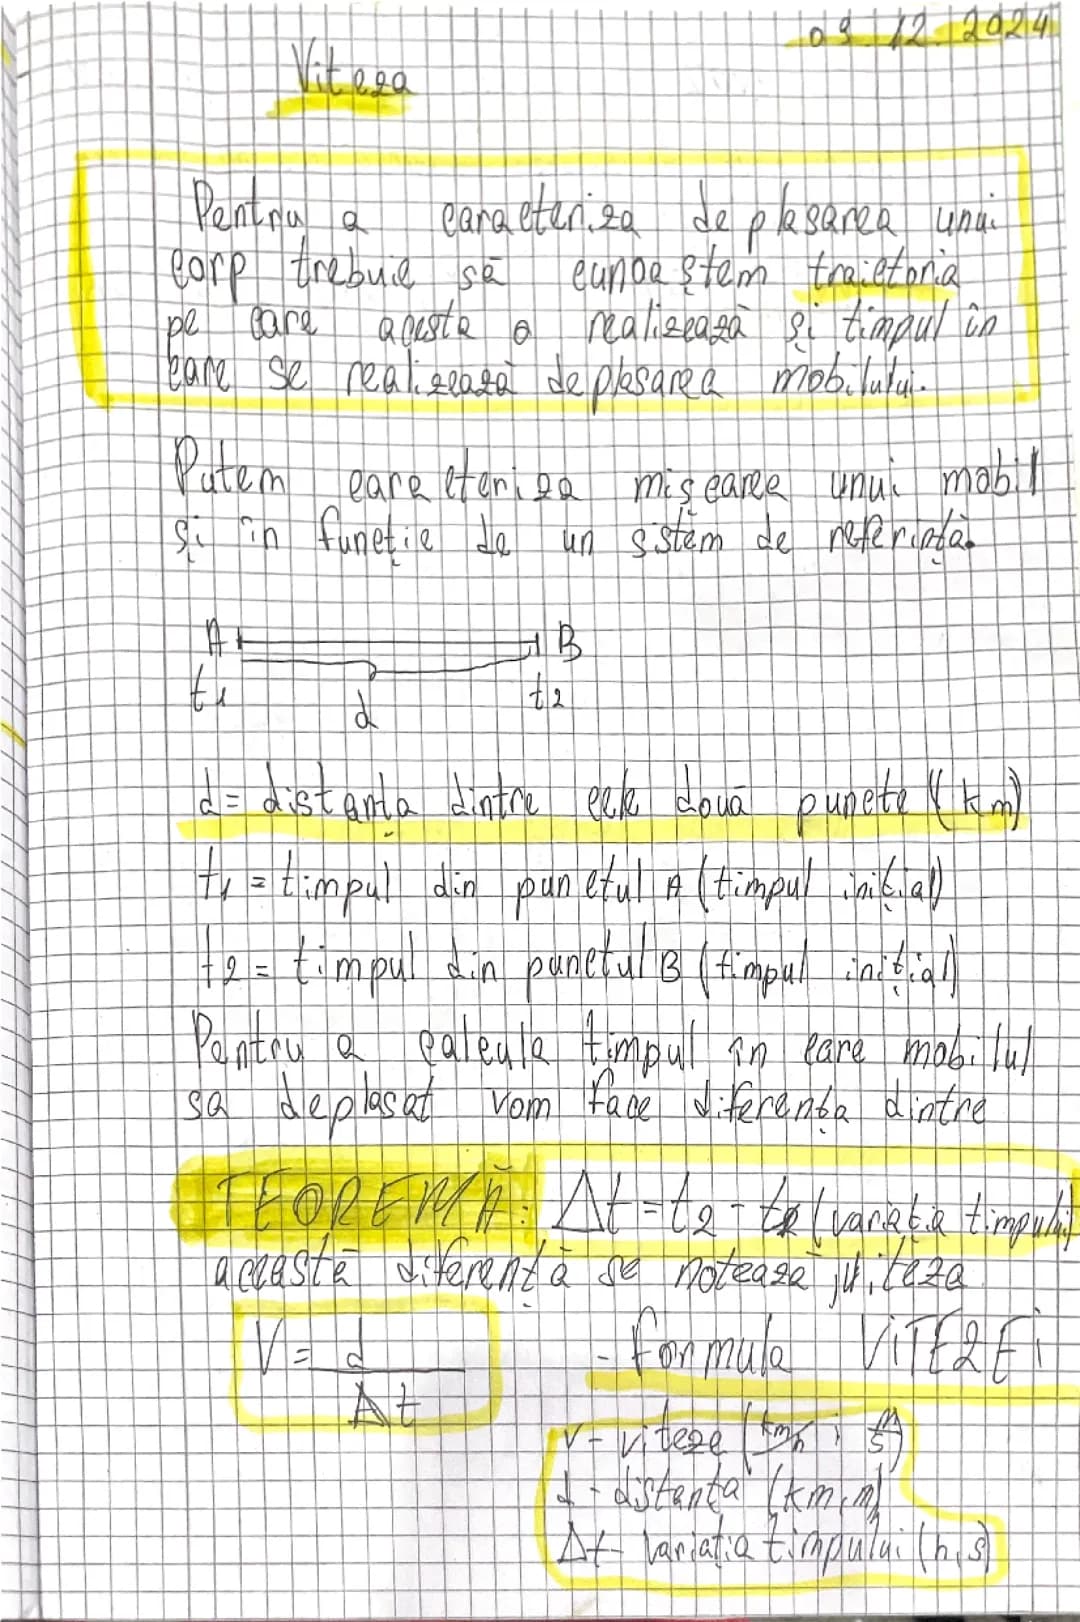 09.12.2024
Viteza
Pentru a caracteriza deplasarea unui
corp trebuie să cunoaștem traictoria
pe care acesta o realizează și timpul în
care se realizează deplasarea mobilului.
Putem caracteriza mișcarea unui mobil
și în funcție de un sistem de referință.
A B
t1 d t2
d = distanța dintre cele două puncte (km)
t1 = timpul din punctul A (timpul inițial)
t2 = timpul din punctul B (timpul inițial)
Pentru a calcula timpul în care mobilul
sa deplasat vom face diferența dintre
TEOREMĂ: Δt = t2 - t1 (variația timpului)
această diferență se notează viteza
V = d / Δt - formula VITEZEI
v - viteza (km/h ; m/s)
d - distanța (km, m)
Δt - variația timpului (h, s)